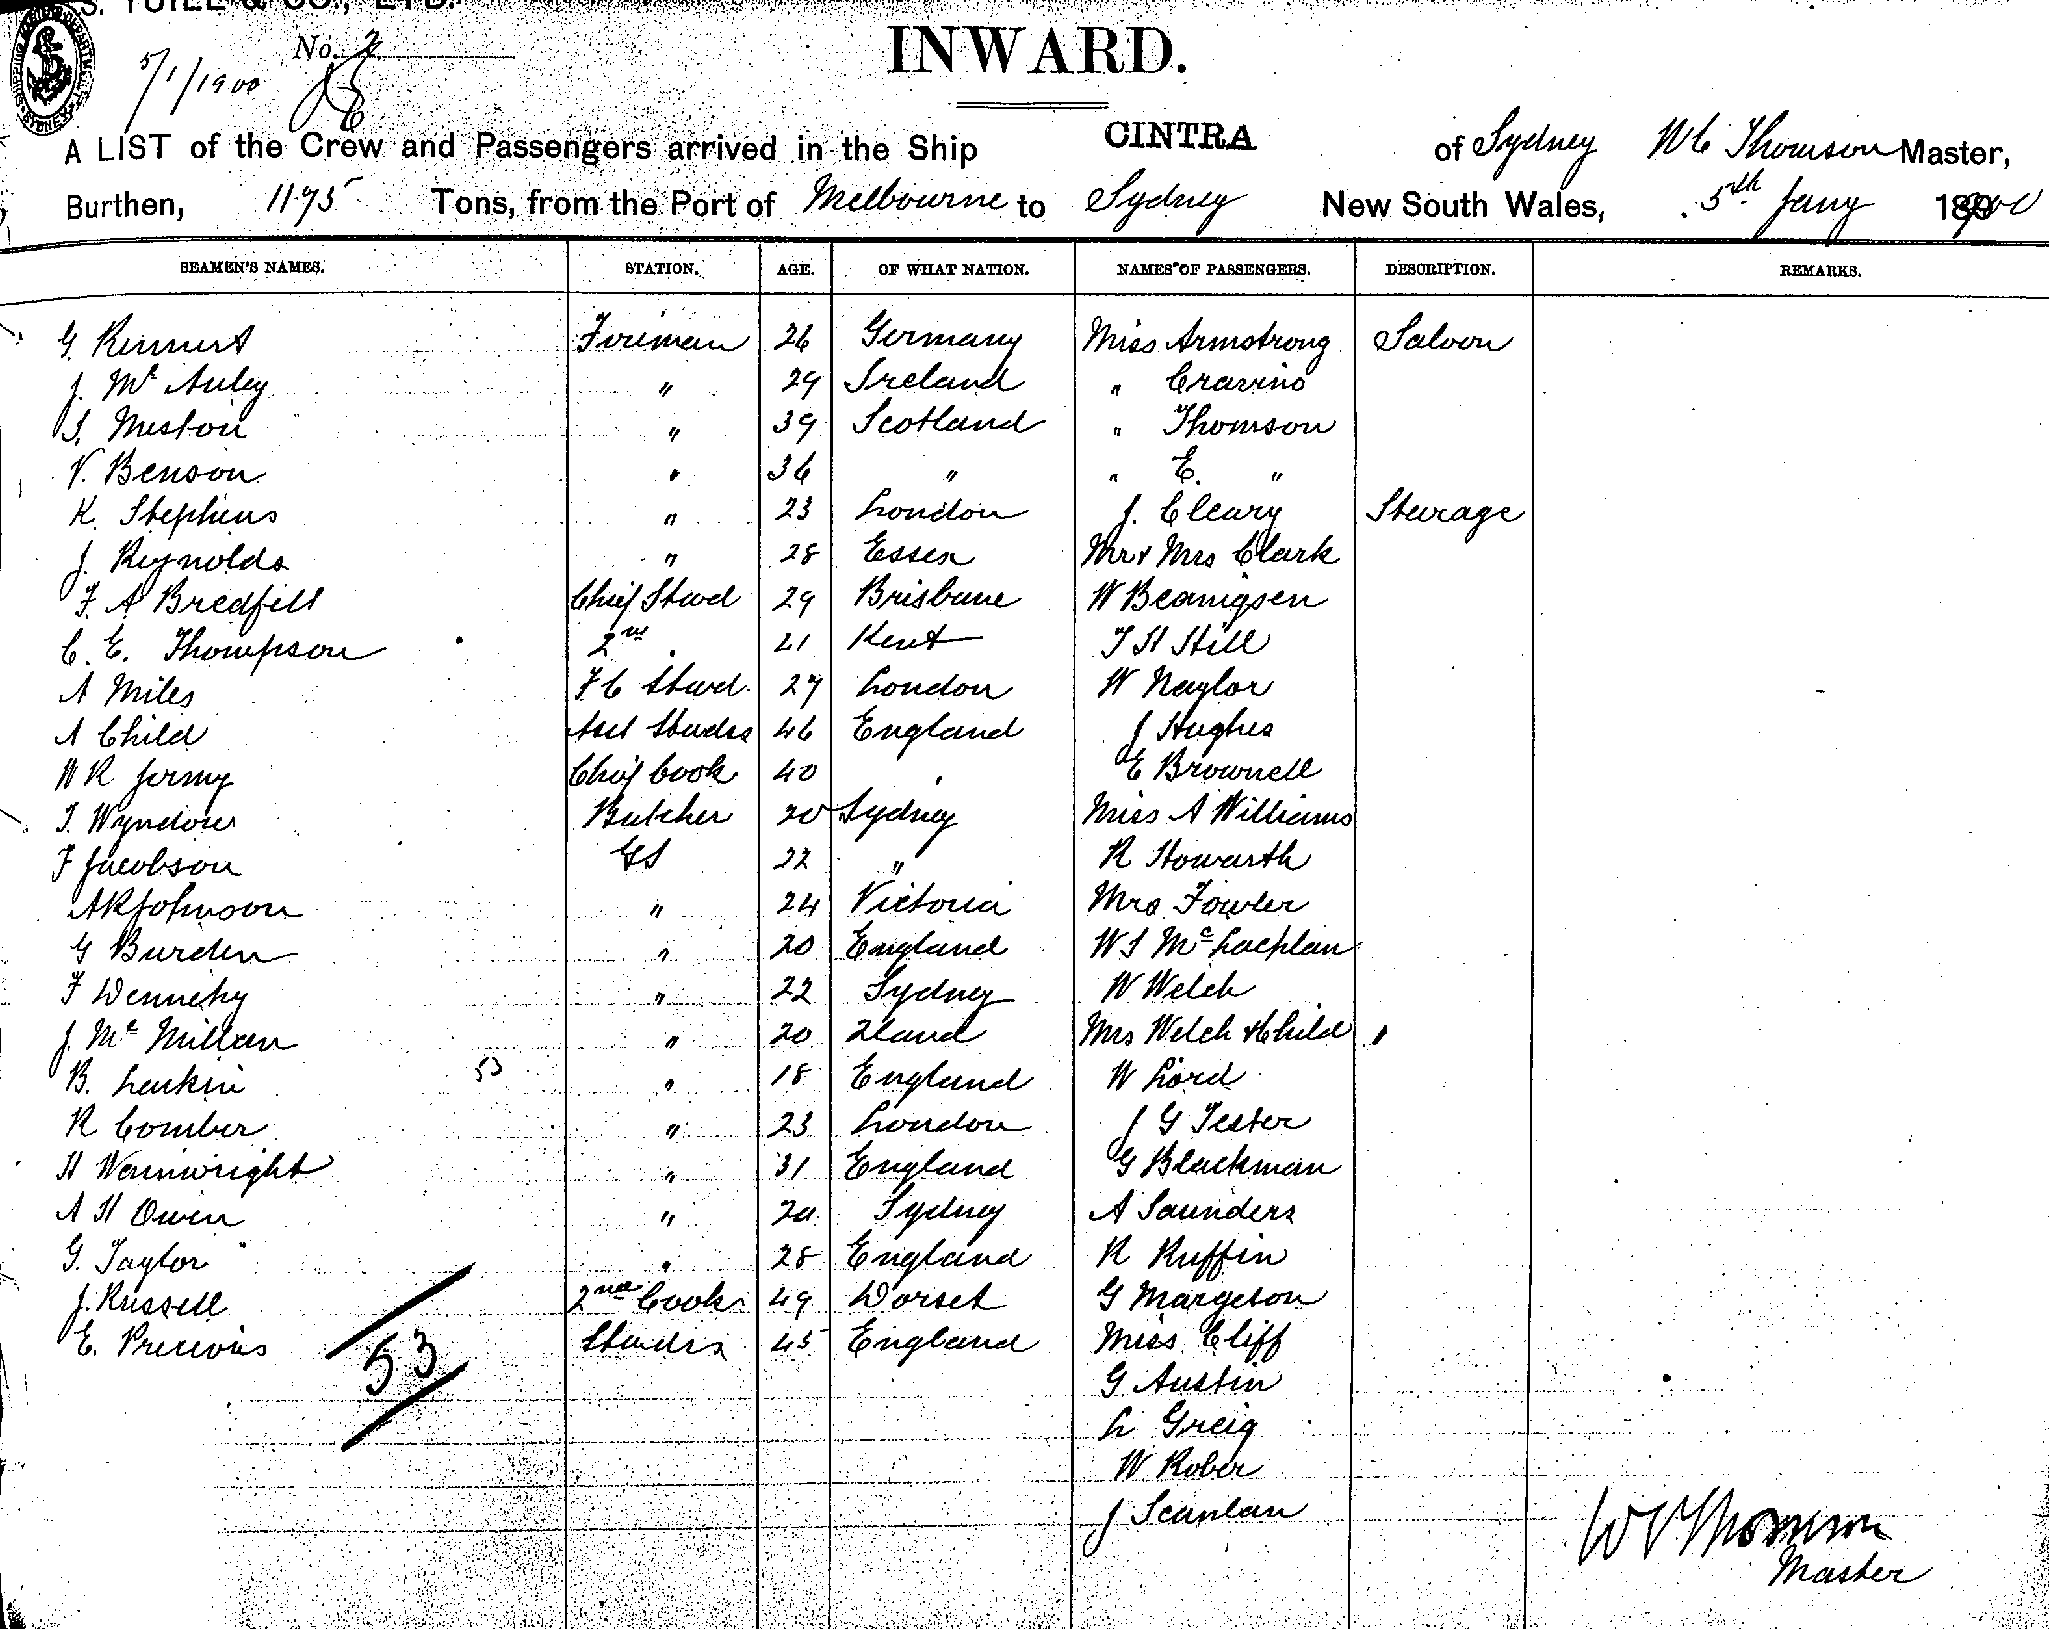 S. YUILL & CO., LTD.
No. 2
5/1/1900
INWARD.
A LIST of the Crew and Passengers arrived in the Ship CINTRA of Sydney W C Thomson Master,
Burthen, 1175 Tons, from the Port of Melbourne to Sydney New South Wales, 5th Jany 1900
SEAMEN'S NAMES. STATION. AGE. OF WHAT NATION. NAMES OF PASSENGERS. DESCRIPTION. REMARKS.
G. Rennert Fireman 26 Germany Miss Armstrong Saloon
J. Mc Auley " 29 Ireland " Cravino
S. Meston " 39 Scotland " Thomson
V. Benson " 36 " " E. "
K. Stephens " 23 London J. Cleary Steerage
J. Reynolds " 28 Essex Mr & Mrs Clark
F. A Bredfell Chief Stwd 29 Brisbane W Beanigsen
C. E. Thompson 2nd " 21 Kent T H Hill
A Miles F C Stwd 27 London W Naylor
A Child Asst Stwdss 46 England J Hughes
W R Jermy Chief Cook 40 " E Brownell
T. Wyndow Butcher 20 Sydney Miss A Williams
F Jacobson GS 22 " R Howarth
A R Johnson " 24 Victoria Mrs Fowler
G Burden " 20 England W S Mc Lachlan
F Dennehy " 22 Sydney W Welch
J. Mc Millan " 20 Zland Mrs Welch & Child "
B. Larkin 53 " 18 England W Lord
R Comber " 23 London J G Tester
H Wainwright " 31 England G Blackman
A H Owen " 20 Sydney A Saunders
G. Taylor " 28 England R Ruffin
J. Russell 2nd Cook 49 Dorset G Margetson
E. Precious Stwdss 45 England Miss Cliff
53
G Austin
L Greig
W Rober
J Scanlan
W C Thomson
Master